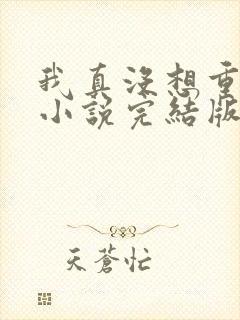 我真没想重
小說完結版
天蒼忙